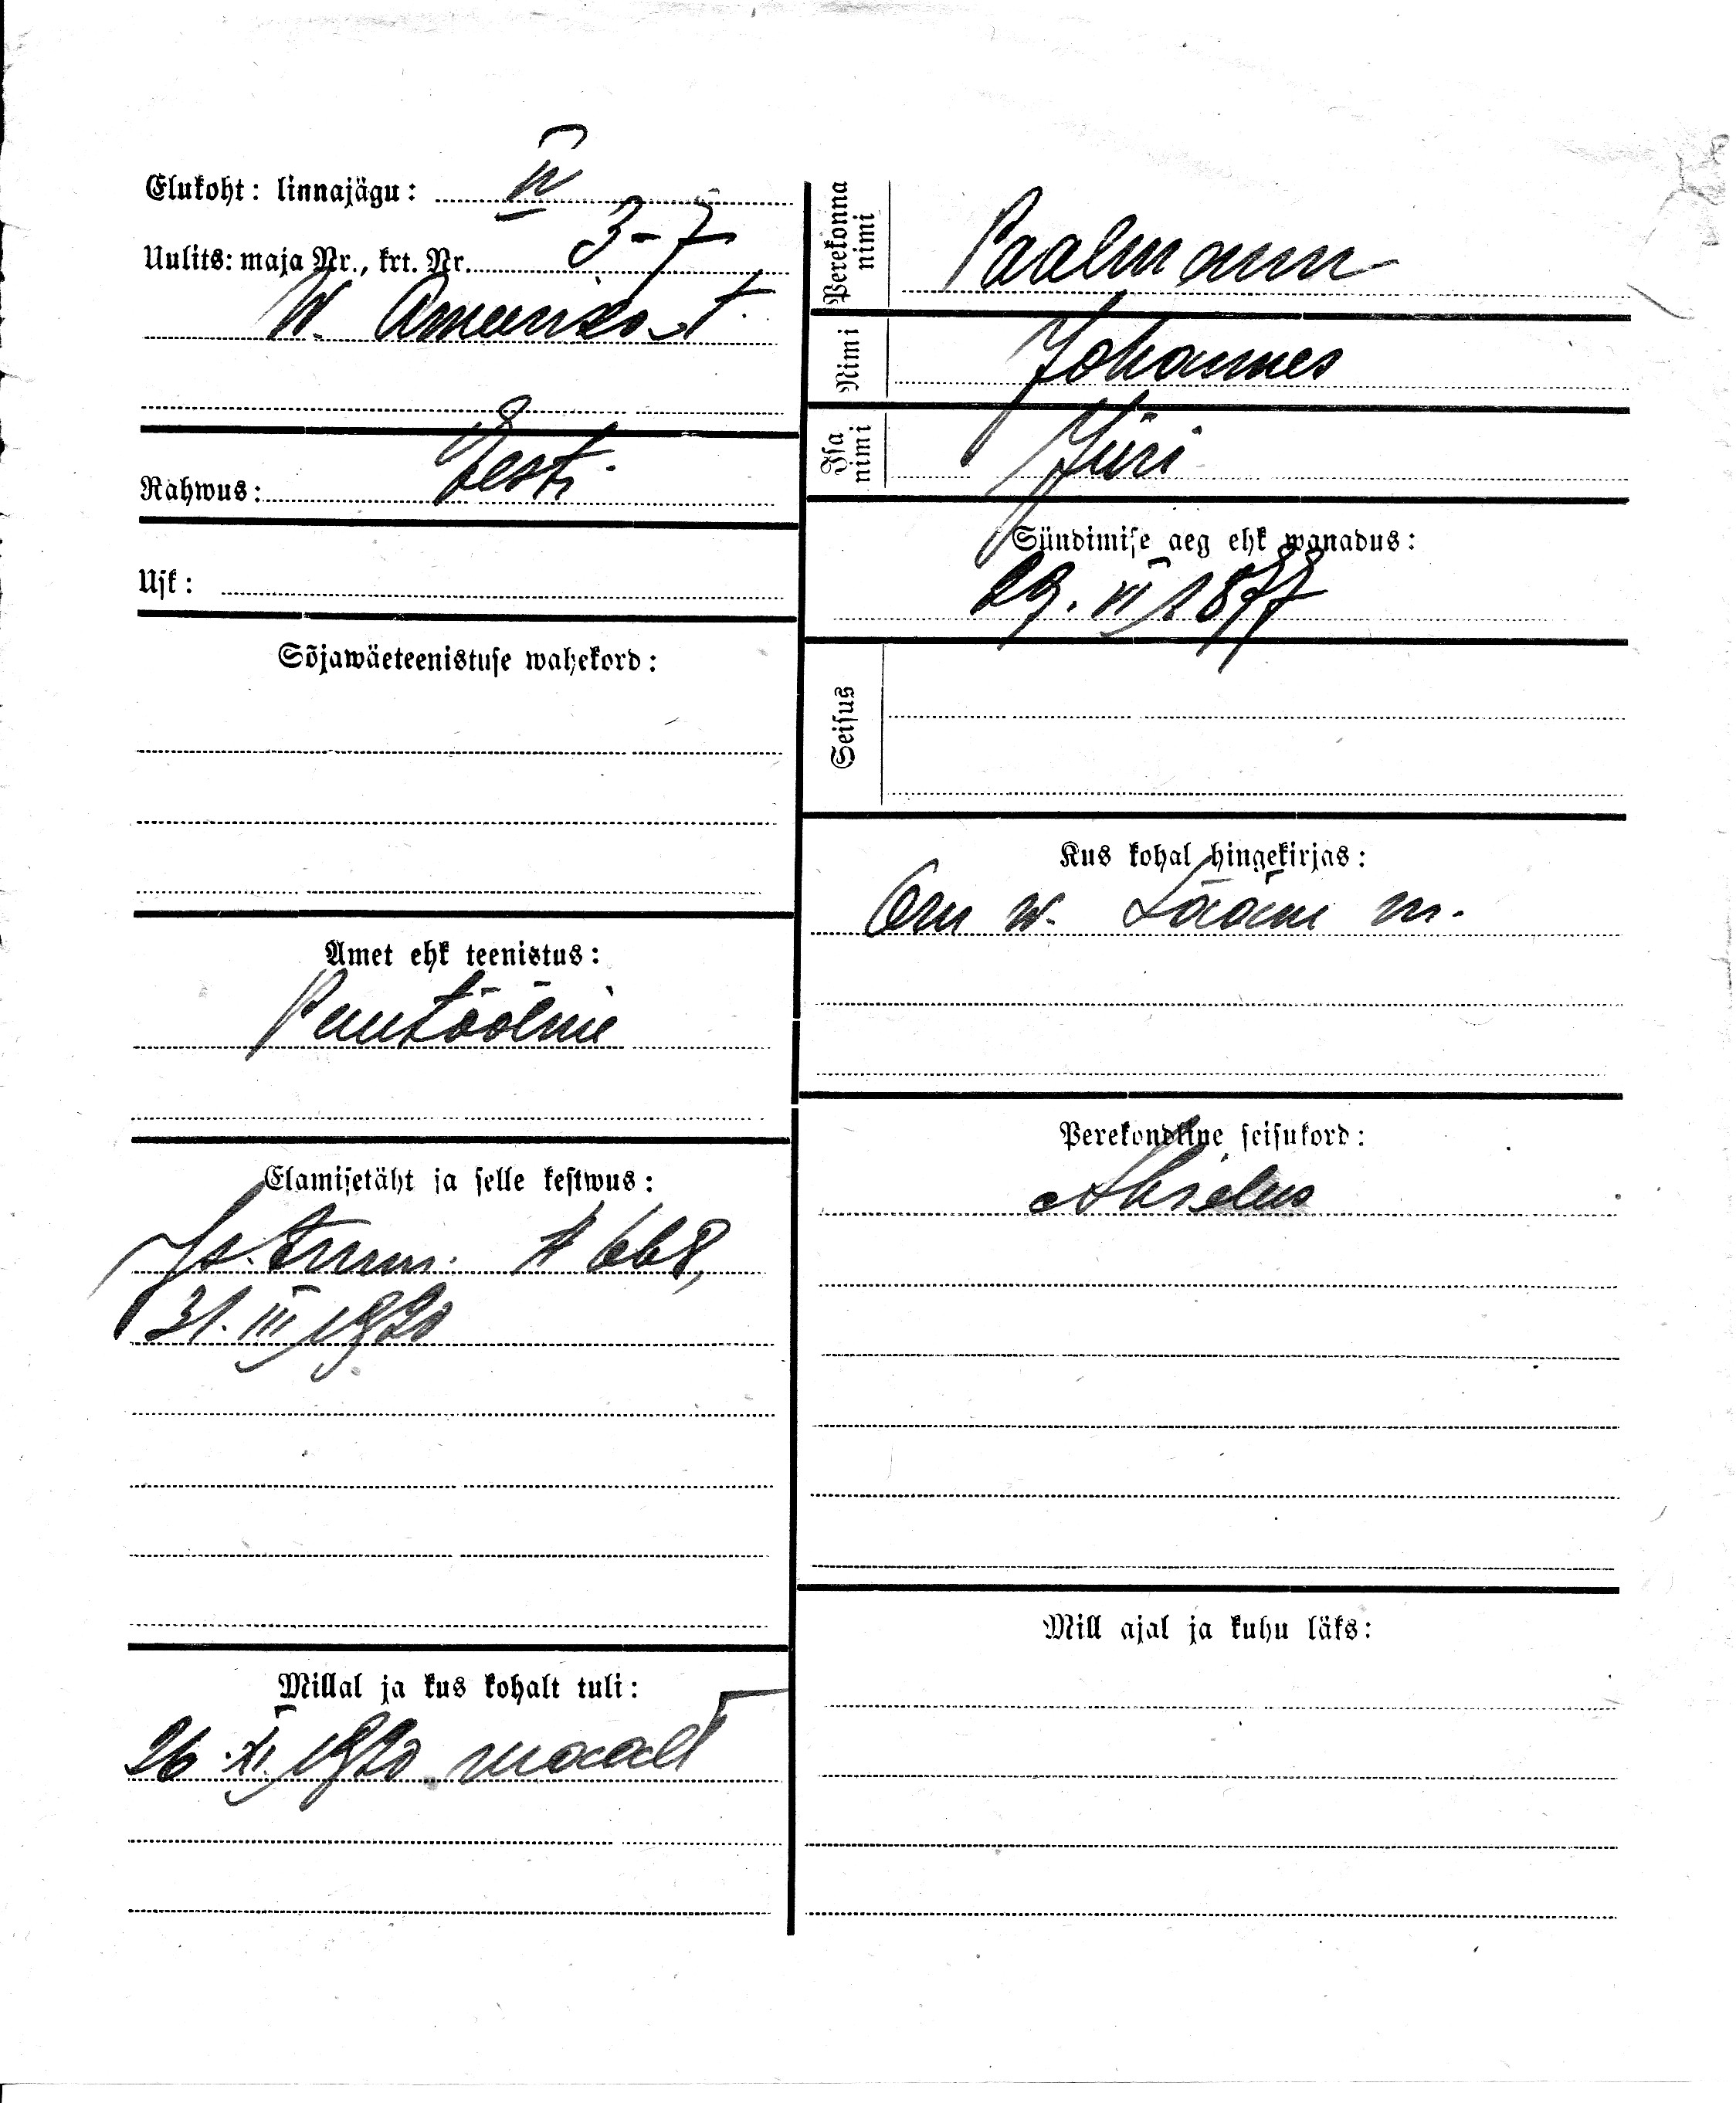 Elukoht: linnajägu: IV
Uulits: maja Nr., krt. Nr. 3-7
W. Ameerika t.
Rahwus: Eesti
Usk:
Sõjawäeteenistuse wahekord:
Amet ehk teenistus:
Puutööline
Elamisetäht ja selle kestwus:
Is. tunn. # 668,
31. III 1920
Millal ja kus kohalt tuli:
26. XI 1920 maalt
Perekonna nimi Paalmann
Nimi Johannes
Isa nimi Jüri
Sündimise aeg ehk wanadus:
29. VI 1877
Seisus
Kus kohal hingekirjas:
w. Lääne m.
Perekondline seisukord:
Abielus
Mill ajal ja kuhu läks: